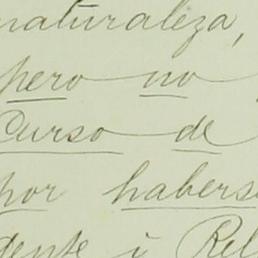 naturaleza,
pero no
Curso de
por habers
dente i Rel